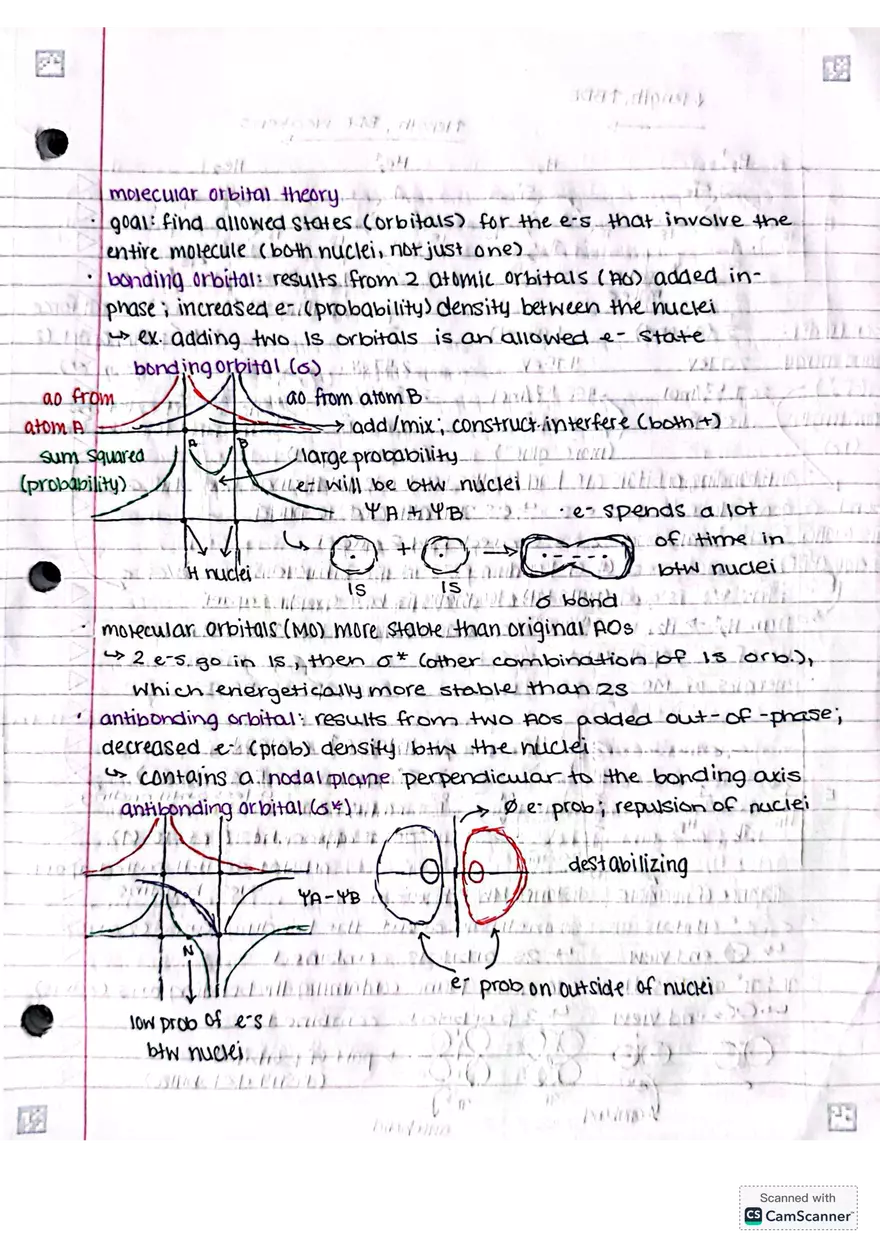 molecular orbital theory
· goal: find allowed states (orbitals) for the e-s that involve the
entire molecule (both nuclei, not just one)
· bonding orbital: results from 2 atomic orbitals (AO) added in-
phase; increased e- (probability) density between the nuclei
↳ ex. adding two 1s orbitals is an allowed e- state
bonding orbital (σ)
ao from
atom A
ao from atom B
→ add/mix; construct. interfere (both +)
A B
sum squared
(probability)
large probability
e- will be btw nuclei
ΨA + ΨB
· e- spends a lot
of time in
btw nuclei
+ →
H nuclei
1s 1s
σ bond
· molecular orbitals (MO) more stable than original AOs
↳ 2 e-s go in 1s, then σ* (other combination of 1s orb.),
which energetically more stable than 2s
· antibonding orbital: results from two AOs added out-of-phase;
decreased e- (prob) density btw the nuclei
↳ contains a nodal plane perpendicular to the bonding axis
antibonding orbital (σ*)
→ Ø e- prob; repulsion of nuclei
destabilizing
ΨA - ΨB
N
e- prob on outside of nuclei
low prob of e-s
btw nuclei
Scanned with
CS CamScanner